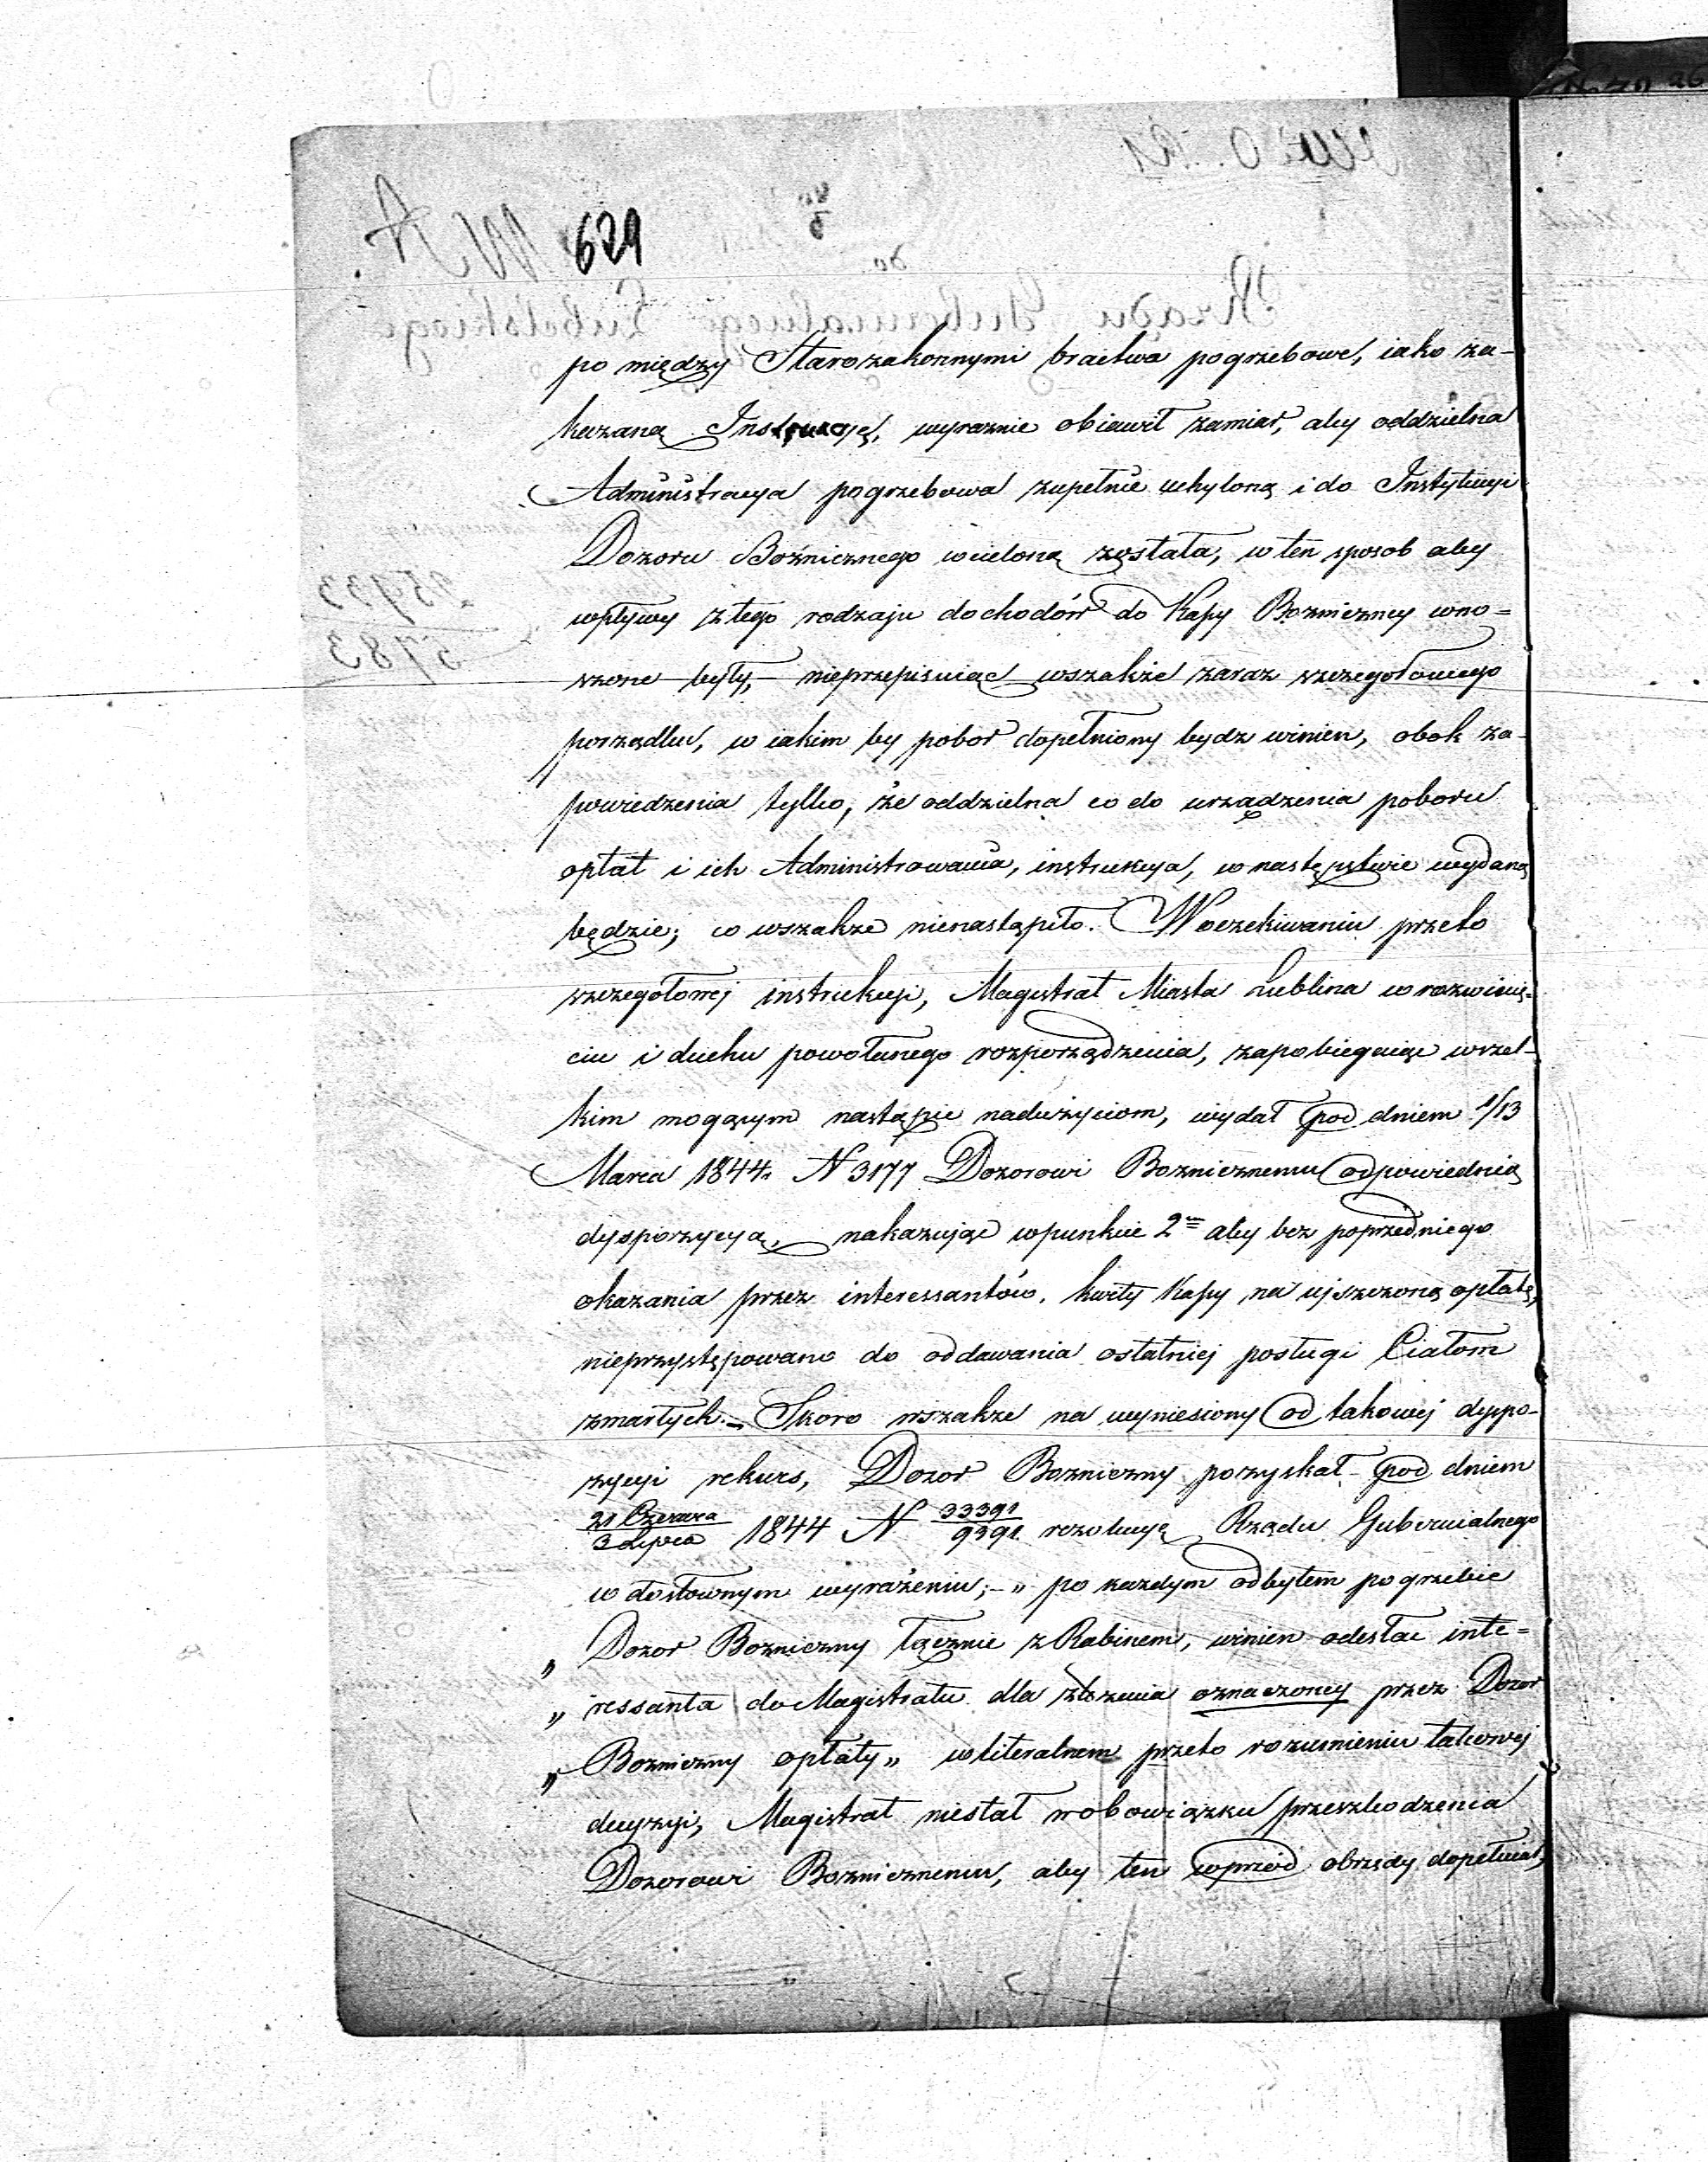 629
po między Starozakonnymi bractwa pogrzebowe, iako za-
kazaną Instytucyę, wyraznie obiawił zamiar, aby oddzielna
Administracya pogrzebowa zupełnie uchyloną i do Instytucyi
Dozoru Bożnicznego wcieloną została, w ten sposob aby
wpływy z tego rodzaju dochodów do Kassy Bozniczney wno=
szone były, nieprzepisuiąc wszakże zaraz szczegołowego
porządku, w iakim by pobor dopełniony bydz winien, obok za-
powiedzenia tylko, że oddzielna co do urządzenia poboru
opłat i ich Administrowania, instrukcya, w następstwie wydaną
będzie; co wszakze nienastąpiło. W oczekiwaniu przeto
szczegołowej instrukcyi, Magistrat Miasta Lublina w rozwinię-
ciu i duchu powołanego rozporządzenia, zapobiegaiąc wszel-
kim mogącym nastąpic nadużyciom, wydał pod dniem 1/13
Marca 1844. N 3177 Dozorowi Boznicznemu odpowiednią
dyspozycyą, nakazując w punkcie 2m aby bez poprzedniego
okazania przez interessantów. kwity Kassy na ujszczoną opłatę,
nieprzystępowano do oddawania ostatniej posługi Ciałom
zmarłych. – Skoro wszakże na wyniesiony od takowej dyspo-
zycyi rekurs, Dozor Bozniczny pozyskał pod dniem
21 Czerwca/3 Lipca 1844 N 33391/9391 rezolucyę Rządu Gubernialnego
w dosłownym wyrażeniu; – „ po kazdym odbytem pogrzebie
„ Dozor Bozniczny łącznie z Rabinem, winien odesłac inte=
„ ressanta do Magistratu dla złozenia oznaczoney przez Dozor
„ Bozniczny opłaty „ w literalnem przeto rozumieniu takowej
decyzyi, Magistrat niestał w obowiązku przeszkodzenia
Dozorowi Boznicznemu, aby ten wprzód obrzędy dopełniał,